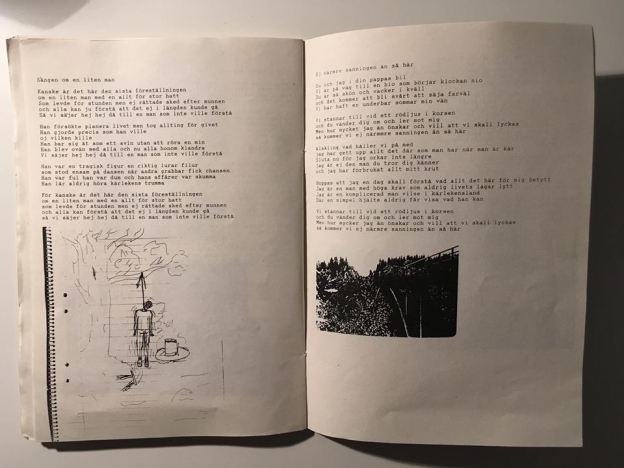 Sången om en liten man
Kanske är det här den sista föreställningen
om en liten man med en allt för stor hatt
Som levde för stunden men ej rättade sked efter munnen
och alla kan ju förstå att det ej i längden kunde gå
Så vi säjer hej då till en man som inte ville förstå
Han försökte planera livet men tog allting för givet
Han gjorde precis som han ville
ej vilken kille
Han bar sig åt som ett svin utan att röra en min
Han blev ovän med alla och nu alla honom klandra
Vi säjer hej hej då till en man som inte ville förstå
Han var en tragisk figur en riktig lurar filur
som stod ensam på dansen när andra grabbar fick chansen
Han var ful han var dum och hans affärer var skumma
Han lär aldrig höra kärlekens trumma
För kanske är det här den sista föreställningen
om en liten man med en allt för stor hatt
som levde för stunden men ej rättade sked efter munnen
och alla kan förstå att det ej i längden kunde gå
så vi säjer hej hej då till en man som inte ville förstå
Ej närmre sanningen än så här
Du och jag i din pappas bil
Vi är på väg till en bio som börjar klockan nio
Du är så skön och vacker i kväll
och det kommer att bli svårt att säja farväl
Vi har haft en underbar sommar min vän
Vi stannar till vid ett rödljus i korsen
och du vänder dig om och ler mot mig
Men hur mycket jag än önskar och vill att vi skall lyckas
så kommer vi ej närmre sanningen än så här
Älskling vad håller vi på med
Jag har gett upp allt det där som man har när man är kär
Sluta nu för jag orkar inte längre
Jag är ej den man du tror dig känner
och jag har förbrukat allt mitt krut
Hoppas att jag en dag skall förstå vad allt det här för mig betytt
Jag är en man med höga krav som aldrig livets lagar lytt
Jag är en komplicerad man vilse i kärlekensland
Där en simpel hjälte aldrig får visa vad han kan
Vi stannar till vid ett rödljus i korsen
och du vänder dig om och ler mot mig
Men hur mycket jag än önskar och vill att vi skall lyckas
så kommer vi ej närmre sanningen än så här